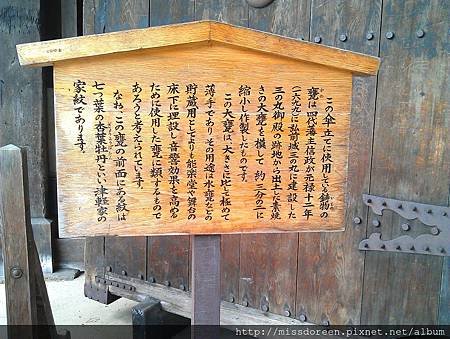 この傘立てに使用している鋳物の
甕は四代藩主信政が元禄十二年
(一六九九)に弘前城三の丸に建設した
三の丸御殿の跡地から出土した素焼
きの大甕を模して約三分の二に
縮小し作製したものです。
この大甕は大きさに比し極めて
薄手でありその用途は水甕などの
貯蔵用としてよりも能楽堂や舞台の
床下に埋設し音響効果を高める
ために使用した甕に類するもので
あろうと考えられています。
なおこの甕の前面にある紋は
七つ葉の杏葉牡丹といい津軽家の
家紋であります。
http://missdoreen.pixnet.net/album